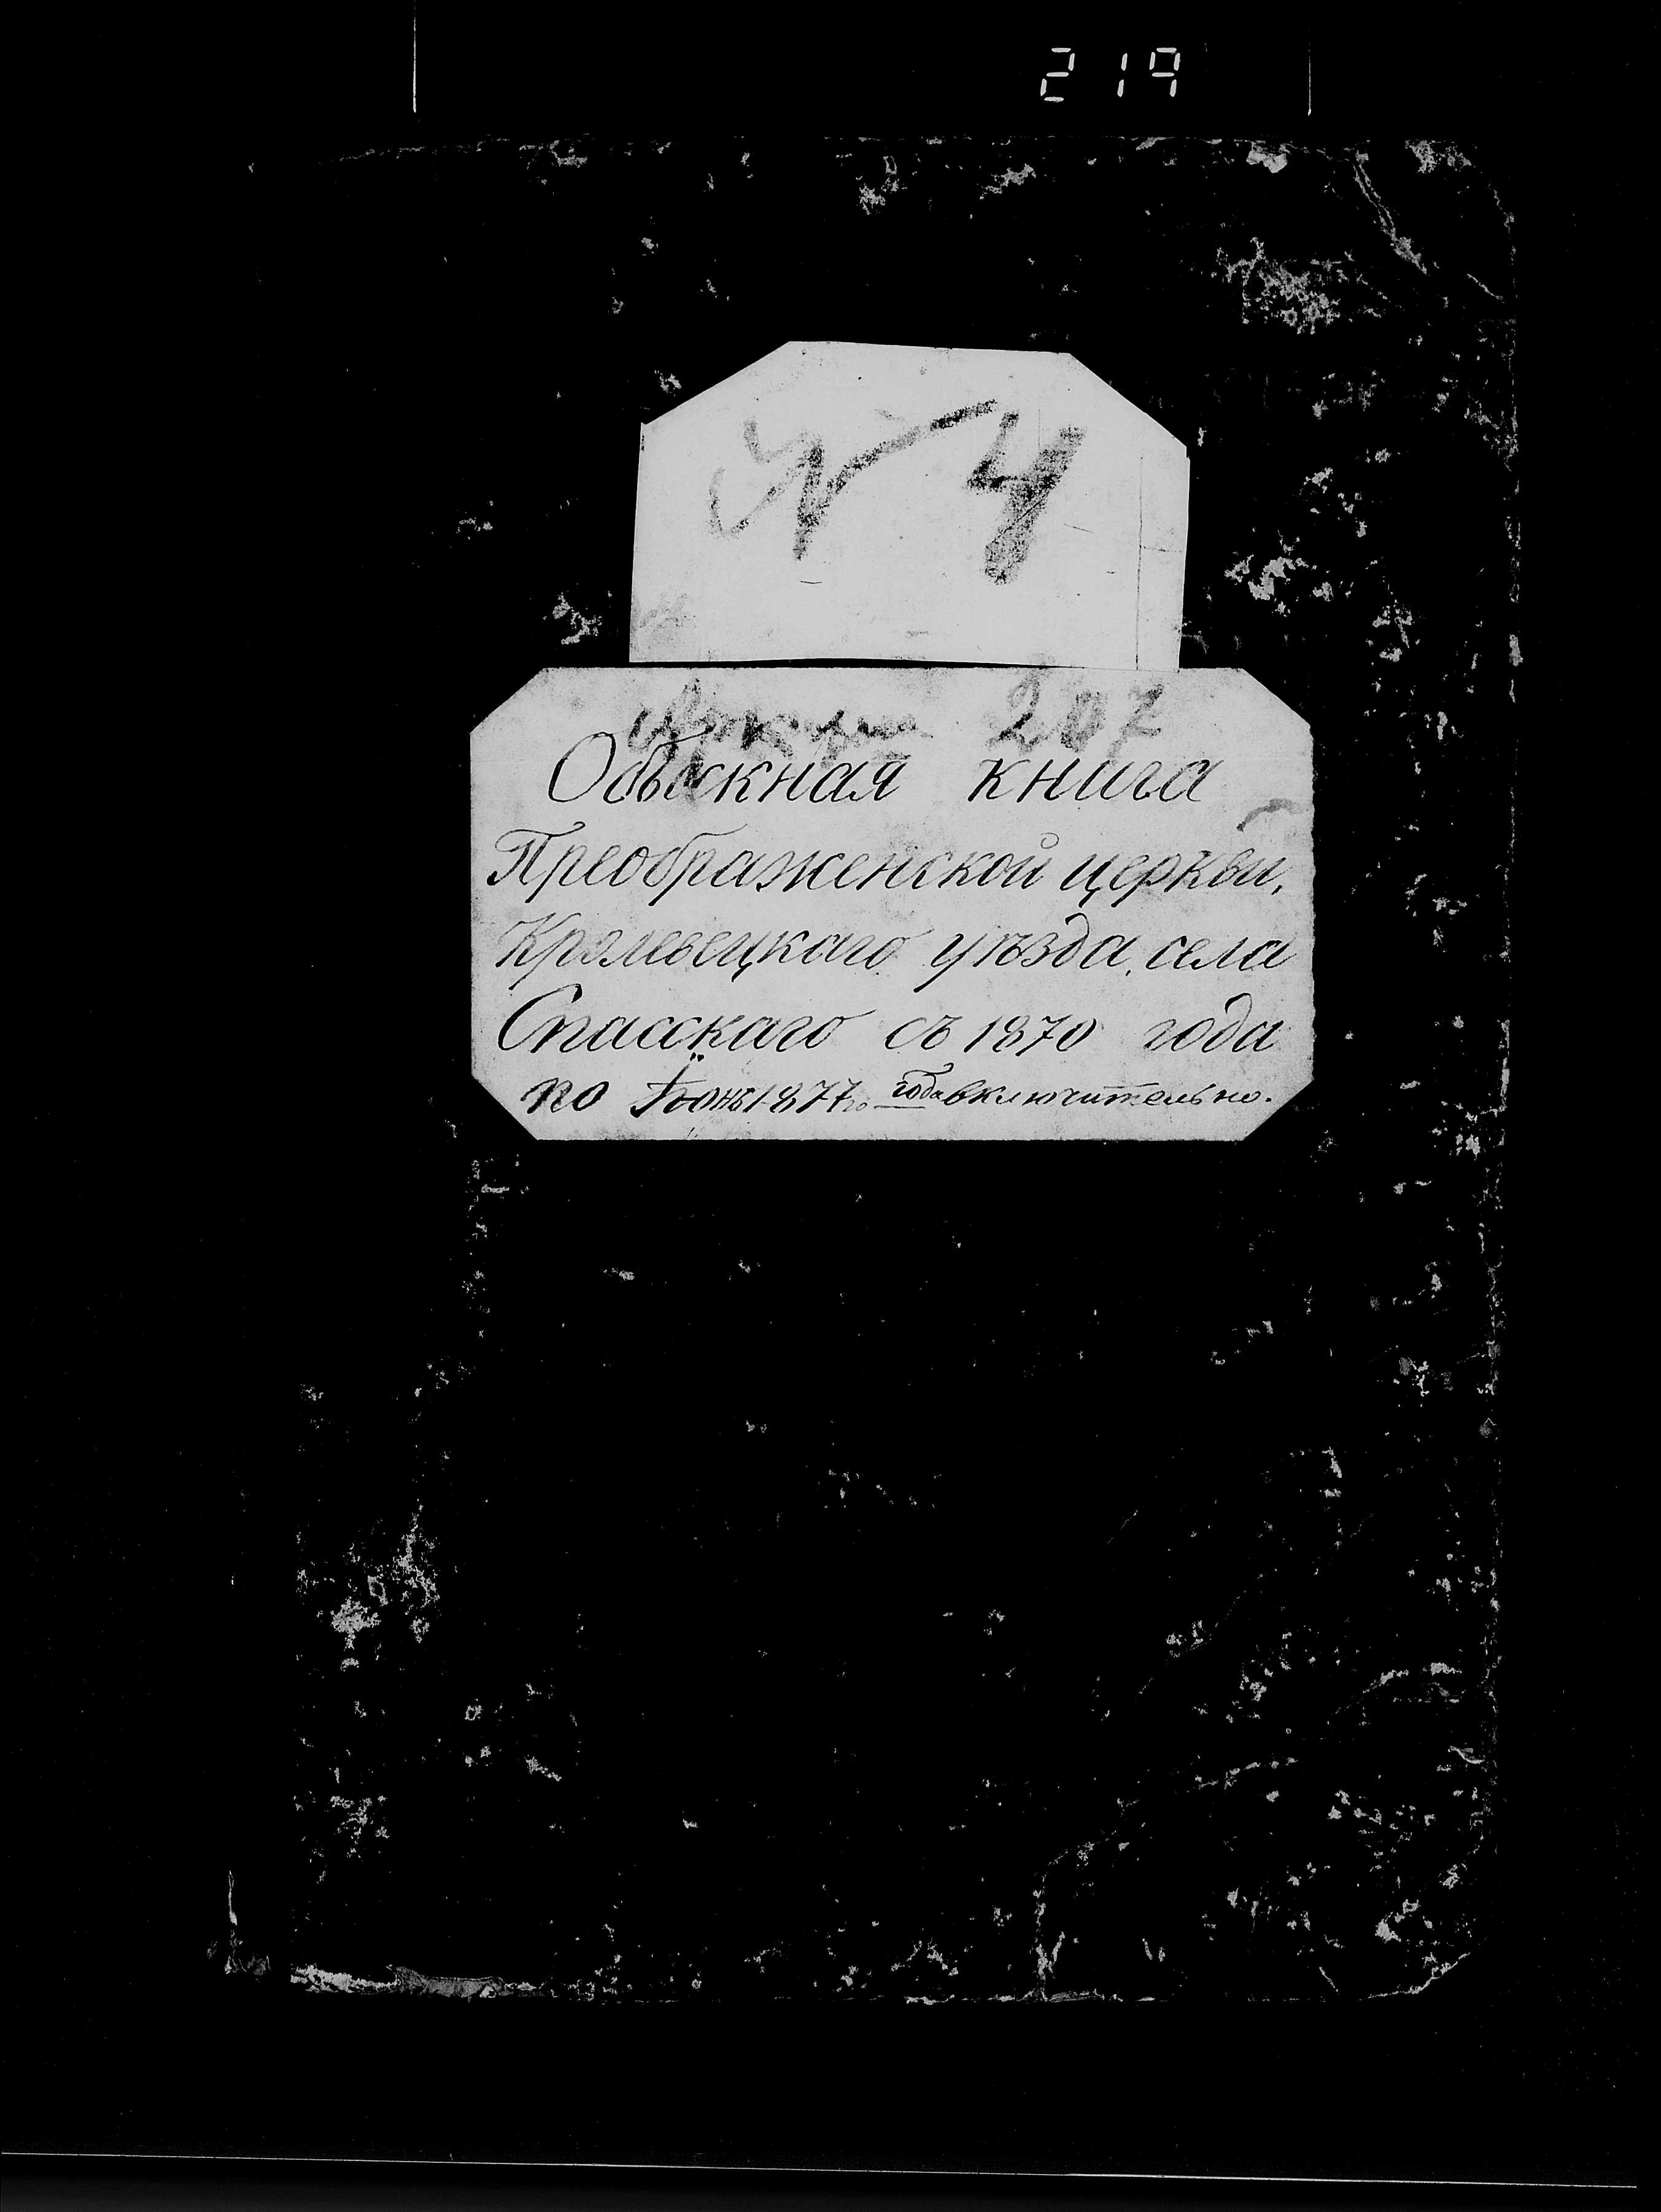 219
№ 4
207
Обыскная книга
Преображенской церкви,
Кролевецкаго уѣзда, села
Спасскаго съ 1870 года
по Іюнь 1877го года включительно.